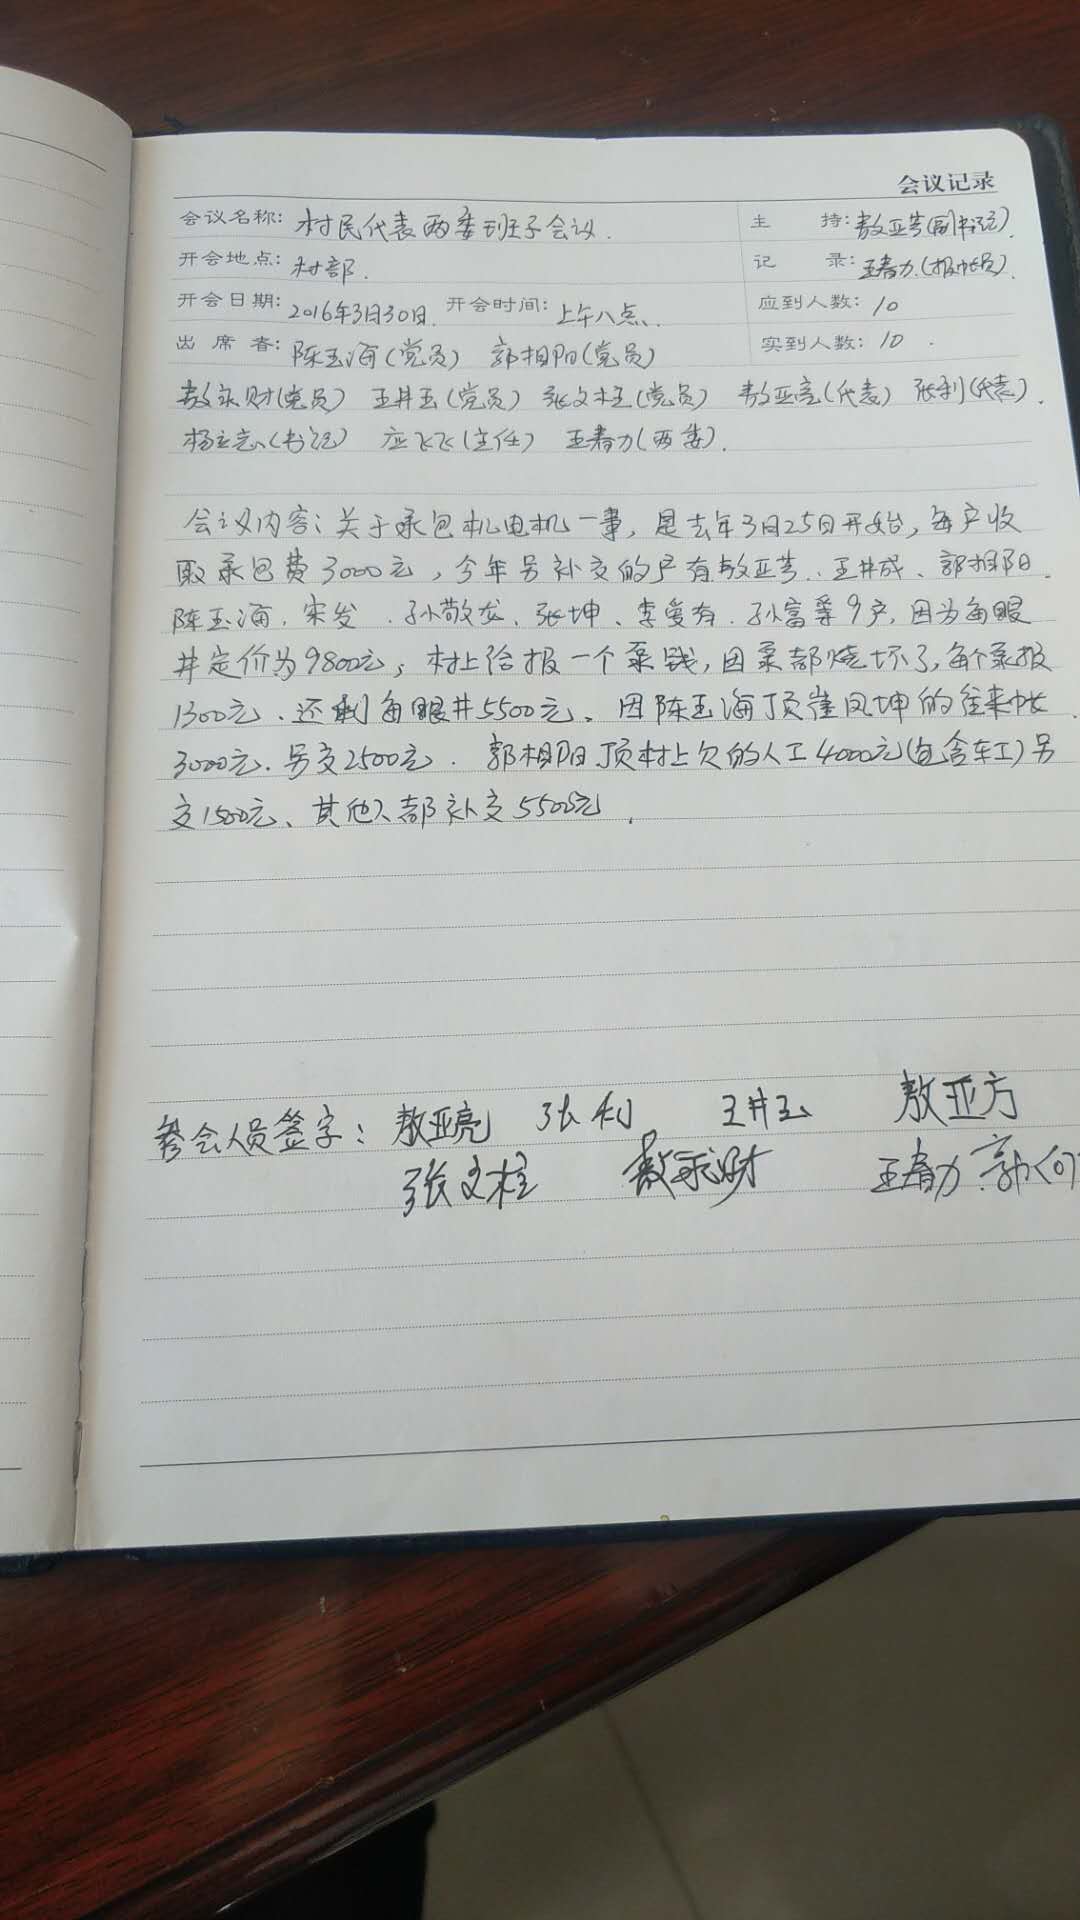 会议记录
会议名称: 村民代表两委班子会议. 主 持: 敖亚芳(副书记).
开会地点: 村部. 记 录: 王春力.(报帐员).
开会日期: 2016年3月30日. 开会时间: 上午八点. 应到人数: 10
出 席 者: 陈玉海(党员) 郭相阳(党员) 实到人数: 10.
敖永财(党员) 王井玉(党员) 张文柱(党员) 敖亚亮(代表) 张利(代表).
杨立志(书记) 应飞飞(主任) 王春力(两委).
会议内容: 关于承包机电机一事, 是去年3月25日开始, 每户收
取承包费3000元, 今年另补交的户有敖亚芳. 王井成、郭相阳.
陈玉海. 宋发. 孙敬龙、张坤、李爱有. 孙富等9户, 因为每眼
井定价为9800元, 村上给报一个泵钱, 因泵都烧坏了, 每个泵报
1300元. 还剩每眼井5500元、因陈玉海顶崔凤坤的往来帐
3000元. 另交2500元. 郭相阳顶村上欠的人工4000元(包含车工)另
交1500元、其他人都补交5500元.
参会人员签字: 敖亚亮 张利 王井玉 敖亚方
张文柱 敖永财 王春力 郭